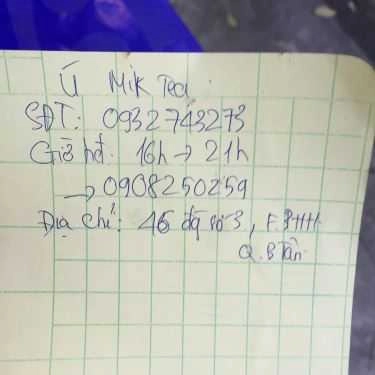 Ú Mik Tea
SĐT: 0932743273
Giờ hđ: 16h → 21h
→ 0908250259
Địa chỉ: 46 đg số 3, F. BHH
Q. B Tân